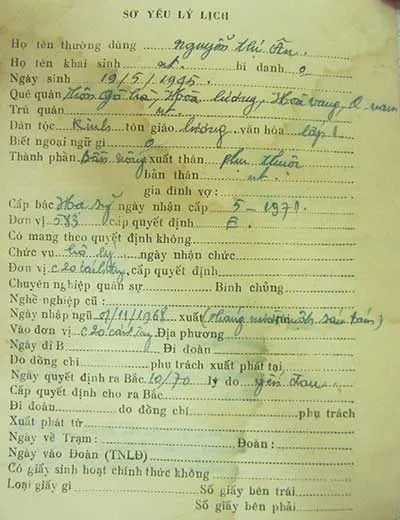 SƠ YẾU LÝ LỊCH
Họ tên thường dùng nguyễn thị Ân.
Họ tên khai sinh nt. bí danh o
Ngày sinh 19/5/1945.
Quê quán thôn gò hà, Hòa lương, Hoà vang, Q. nam
Trú quán nt.
Dân tộc Kinh tôn giáo lương văn hóa lớp 1
Biết ngoại ngữ gì o
Thành phần Bần nông xuất thân phụ thuộc
bản thân nt.
gia đình vợ :
Cấp bậc Hạ sỹ ngày nhận cấp 5-1971.
Đơn vị 583 cấp quyết định E.
Có mang theo quyết định không
Chức vụ hộ lý ngày nhận chức
Đơn vị c20 cấp quyết định
Chuyên nghiệp quân sự Binh chủng
Nghề nghiệp cũ :
Ngày nhập ngũ 01/11/1968 xuất
Vào đơn vị c20 Địa phương
Ngày đi B Đi đoàn
Do đồng chí phụ trách xuất phát tại
Ngày quyết định ra Bắc 10/70 lý do yếu đau
Cấp quyết định cho ra Bắc
Đi đoàn do đồng chí phụ trách
Xuất phát từ
Ngày về Trạm : Đoàn :
Ngày vào Đoàn (TNLĐ)
Có giấy sinh hoạt chính thức không
Loại giấy gì Số giấy bên trái
Số giấy bên phải